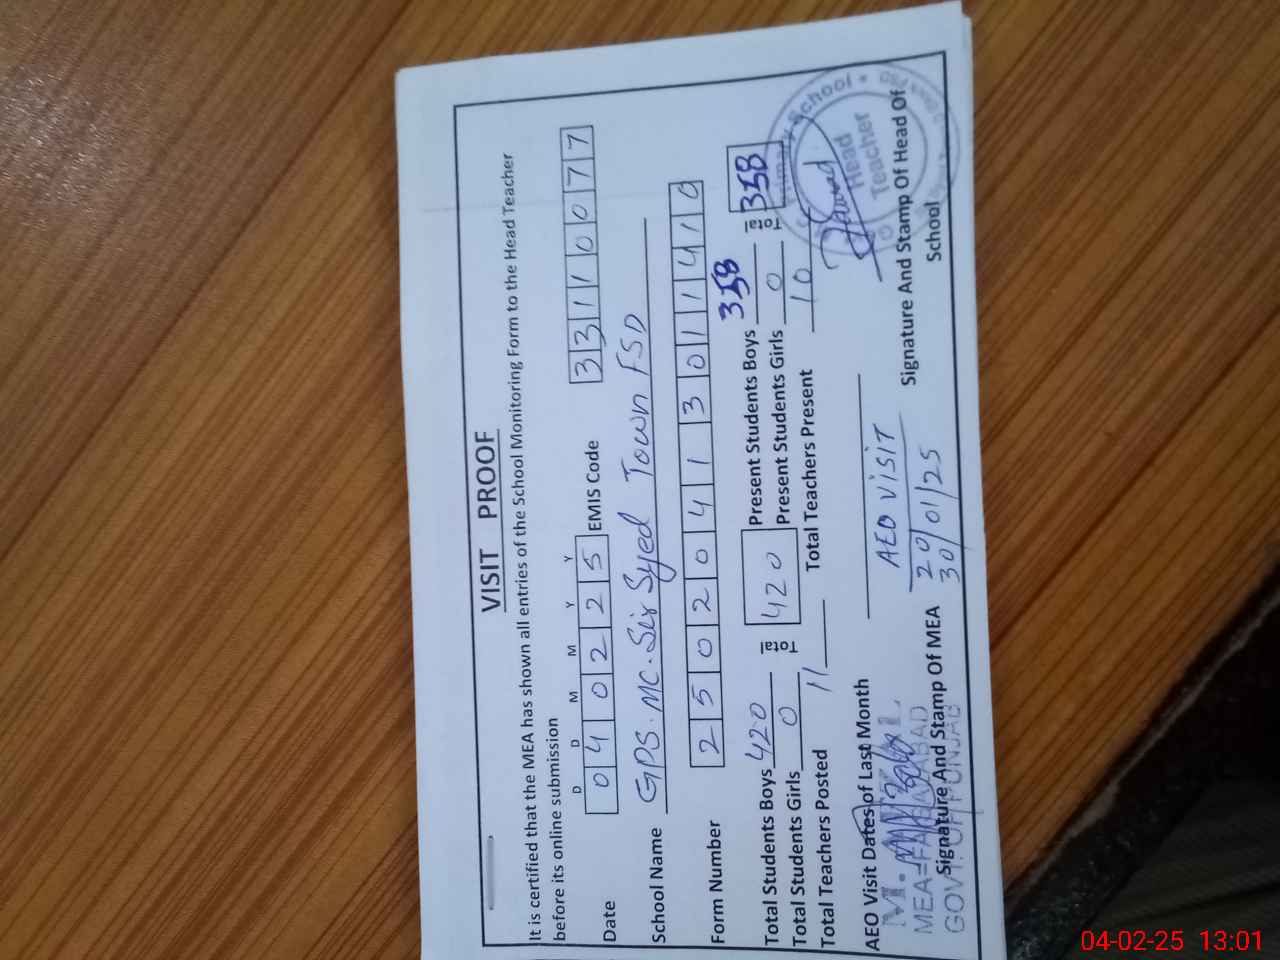 VISIT PROOF
It is certified that the MEA has shown all entries of the School Monitoring Form to the Head Teacher
before its online submission
D D M M Y Y
Date 0 4 0 2 2 5 EMIS Code 3 3 1 1 0 0 7 7
School Name GPS. MC. Sir Syed Town FSD
Form Number 2 5 0 2 0 4 1 3 0 1 1 4 1 0
Total Students Boys 420 Total 420 Present Students Boys 358 Total 358
Total Students Girls 0 Present Students Girls 0
Total Teachers Posted 11 Total Teachers Present 10
AEO Visit Dates of Last Month
AEO VISIT
20/01/25
30/01/25
Signature And Stamp Of MEA
MEA=FAISALABAD
GOVT. OF PUNJAB
Signature And Stamp Of Head Of
School
Primary School
Head
Teacher
04-02-25 13:01